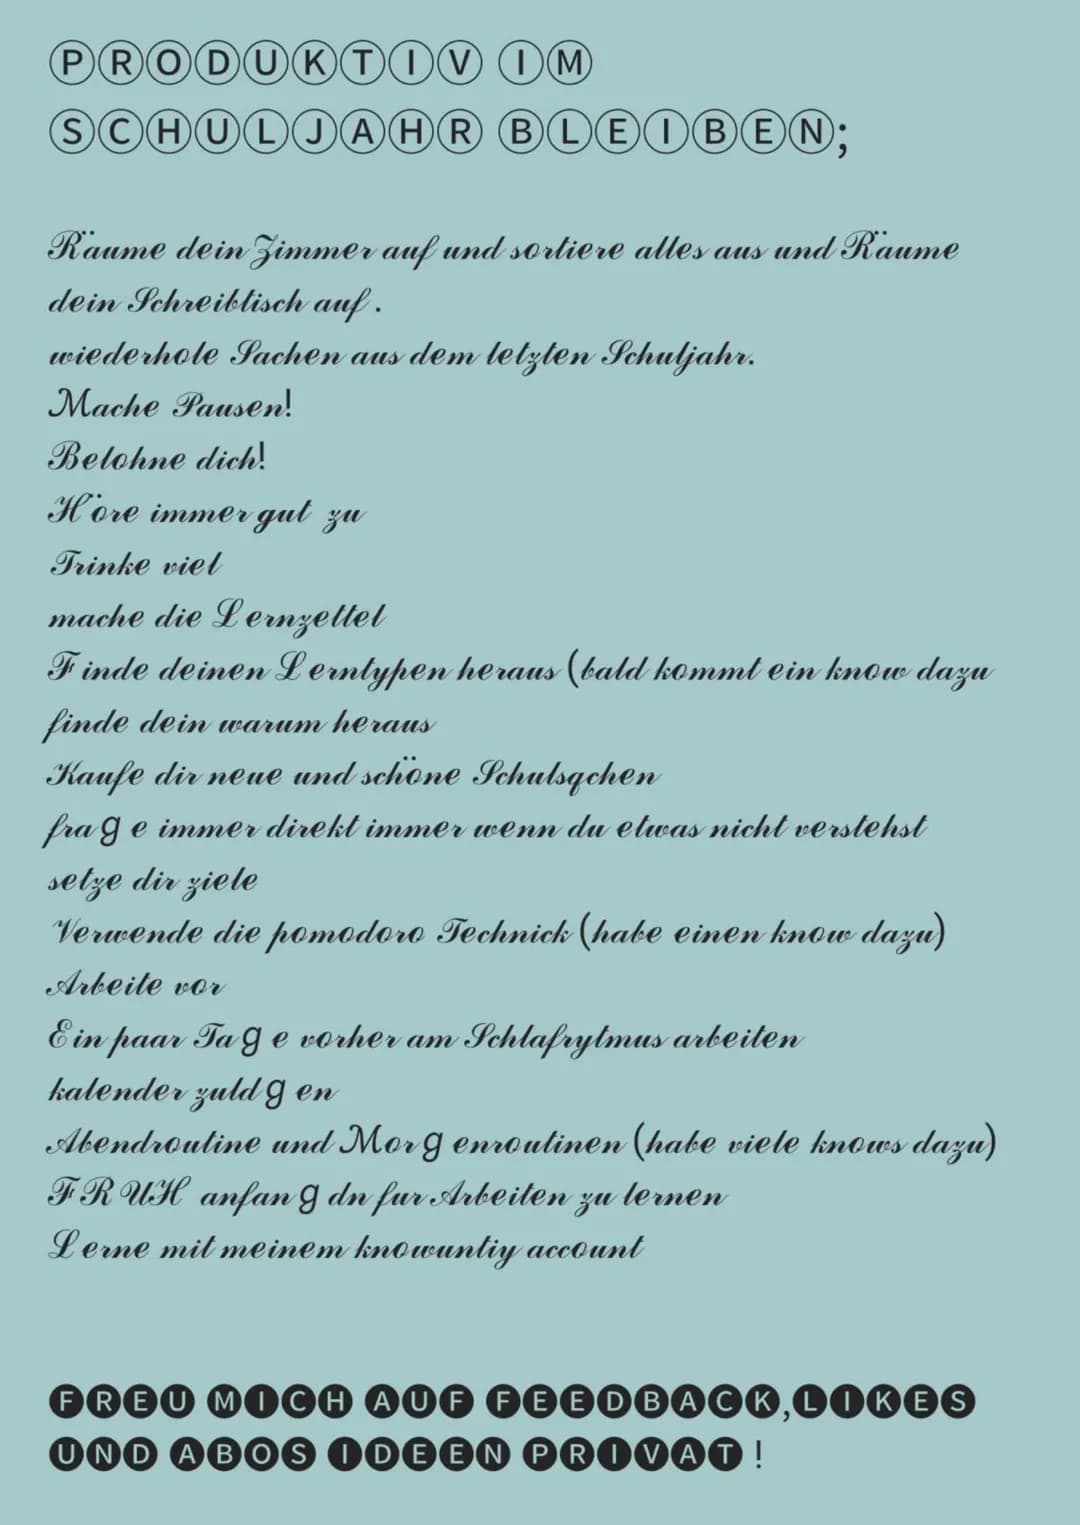 PRODUKTIV IM
SCHULJAHR BLEIBEN;
Räume dein Zimmer auf und sortiere alles aus und Räume
dein Schreibtisch auf.
wiederhole Sachen aus dem letzten Schuljahr.
Mache Pausen!
Belohne dich!
Höre immer gut zu
Trinke viel
mache die Lernzettel
Finde deinen Lerntypen heraus (bald kommt ein know dazu
finde dein warum heraus
Kaufe dir neue und schöne Schulsqchen
frage immer direkt immer wenn du etwas nicht verstehst
setze dir ziele
Verwende die pomodoro Technick (habe einen know dazu)
Arbeite vor
Ein paar Tage vorher am Schlafrytmus arbeiten
kalender zuldgen
Abendroutine und Morgenroutinen (habe viele knows dazu)
FRUH anfangdn fur Arbeiten zu lernen
Lerne mit meinem knowuntiy account
FREU MICH AUF FEEDBACK,LIKES
UND ABOS IDEEN PRIVAT!